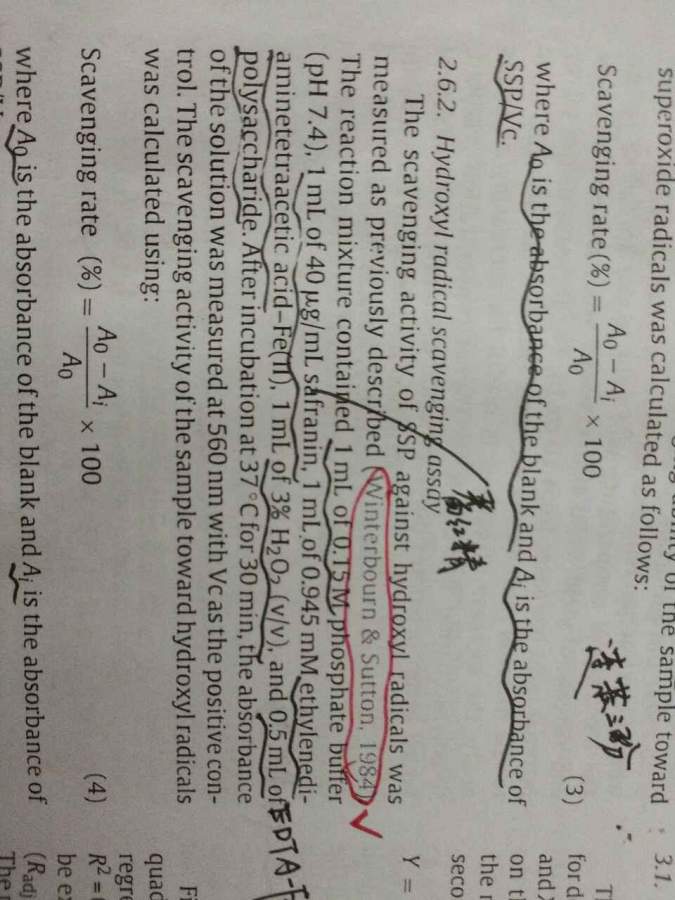 superoxide radicals was calculated as follows:
Scavenging rate (%) = A₀ − Aᵢ / A₀ × 100 (3)
where A₀ is the absorbance of the blank and Aᵢ is the absorbance of
SSP/Vc.
2.6.2. Hydroxyl radical scavenging assay
The scavenging activity of SSP against hydroxyl radicals was
measured as previously described (Winterbourn & Sutton, 1984).
The reaction mixture contained 1 mL of 0.15 M phosphate buffer
(pH 7.4), 1 mL of 40 μg/mL safranin, 1 mL of 0.945 mM ethylenedi-
aminetetraacetic acid–Fe(II), 1 mL of 3% H₂O₂ (v/v), and 0.5 mL of
EDTA-F
polysaccharide. After incubation at 37 °C for 30 min, the absorbance
of the solution was measured at 560 nm with Vc as the positive con-
trol. The scavenging activity of the sample toward hydroxyl radicals
was calculated using:
Scavenging rate (%) = A₀ − Aᵢ / A₀ × 100 (4)
where A₀ is the absorbance of the blank and Aᵢ is the absorbance of
3.1.
for d
and
on th
the r
seco
Y =
Fi
quad
regre
R² =
be ex
(Radj
The r